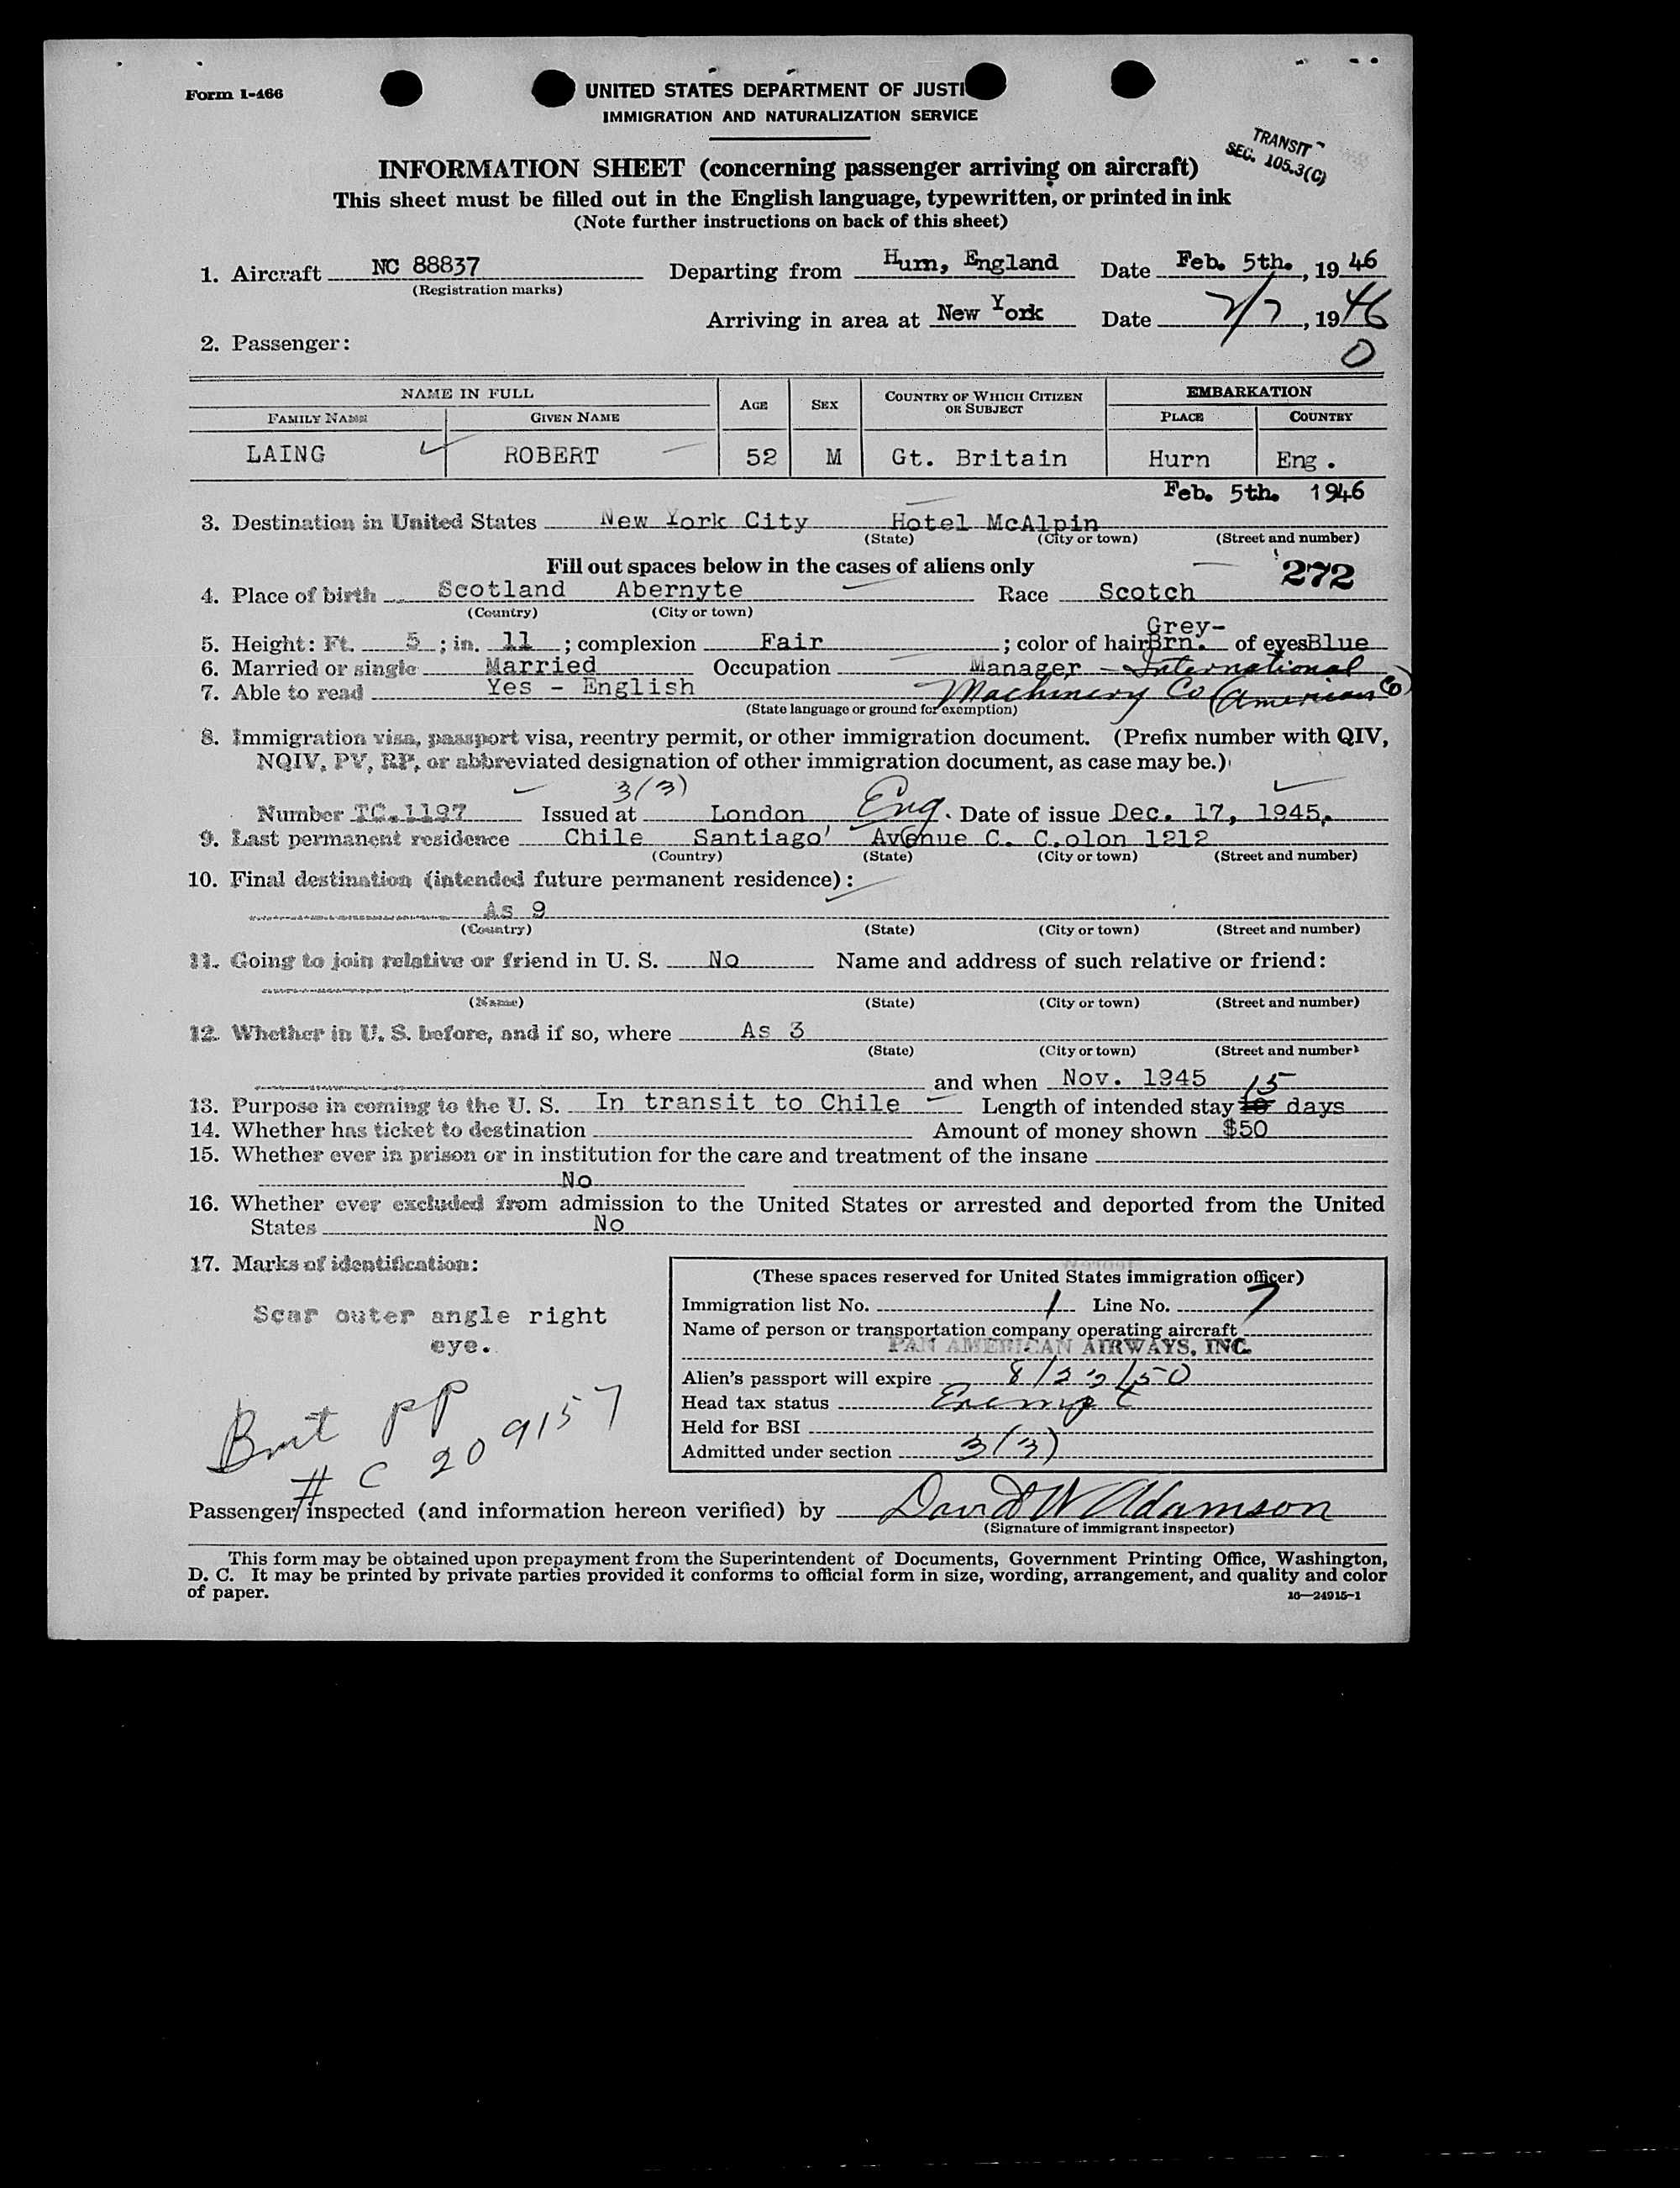 Form I-466
UNITED STATES DEPARTMENT OF JUSTI
IMMIGRATION AND NATURALIZATION SERVICE
TRANSIT
SEC. 105.3(C)
INFORMATION SHEET (concerning passenger arriving on aircraft)
This sheet must be filled out in the English language, typewritten, or printed in ink
(Note further instructions on back of this sheet)
1. Aircraft NC 88837 Departing from Hurn, England Date Feb. 5th. , 19 46
(Registration marks)
Arriving in area at New York Date 2/7 , 19 46
2. Passenger: 0
NAME IN FULL AGE SEX COUNTRY OF WHICH CITIZEN OR SUBJECT EMBARKATION
FAMILY NAME GIVEN NAME PLACE COUNTRY
LAING ROBERT 52 M Gt. Britain Hurn Eng.
Feb. 5th. 1946
3. Destination in United States New York City Hotel McAlpin
(State) (City or town) (Street and number)
Fill out spaces below in the cases of aliens only 272
4. Place of birth Scotland Abernyte Race Scotch
(Country) (City or town)
5. Height: Ft. 5 ; in. 11 ; complexion Fair ; color of hair Grey-Brn. of eyes Blue
6. Married or single Married Occupation Manager - International
7. Able to read Yes - English Machinery Co (American Co)
(State language or ground for exemption)
8. Immigration visa, passport visa, reentry permit, or other immigration document. (Prefix number with QIV,
NQIV, PV, RP, or abbreviated designation of other immigration document, as case may be.)
3(3)
Number TC.1197 Issued at London Eng. Date of issue Dec. 17, 1945.
9. Last permanent residence Chile Santiago Avenue C. C.olon 1212
(Country) (State) (City or town) (Street and number)
10. Final destination (intended future permanent residence):
As 9
(Country) (State) (City or town) (Street and number)
11. Going to join relative or friend in U. S. No Name and address of such relative or friend:
(Name) (State) (City or town) (Street and number)
12. Whether in U. S. before, and if so, where As 3
(State) (City or town) (Street and number)
and when Nov. 1945
13. Purpose in coming to the U. S. In transit to Chile Length of intended stay 15 days
14. Whether has ticket to destination Amount of money shown $50
15. Whether ever in prison or in institution for the care and treatment of the insane
No
16. Whether ever excluded from admission to the United States or arrested and deported from the United
States No
17. Marks of identification:
Scar outer angle right
eye.
Brit PP
# C 209157
(These spaces reserved for United States immigration officer)
Immigration list No. 1 Line No. 7
Name of person or transportation company operating aircraft
PAN AMERICAN AIRWAYS, INC.
Alien's passport will expire 8/23/50
Head tax status Exempt
Held for BSI
Admitted under section 3(3)
Passenger inspected (and information hereon verified) by David W Adamson
(Signature of immigrant inspector)
This form may be obtained upon prepayment from the Superintendent of Documents, Government Printing Office, Washington,
D. C. It may be printed by private parties provided it conforms to official form in size, wording, arrangement, and quality and color
of paper. 16—24915-1